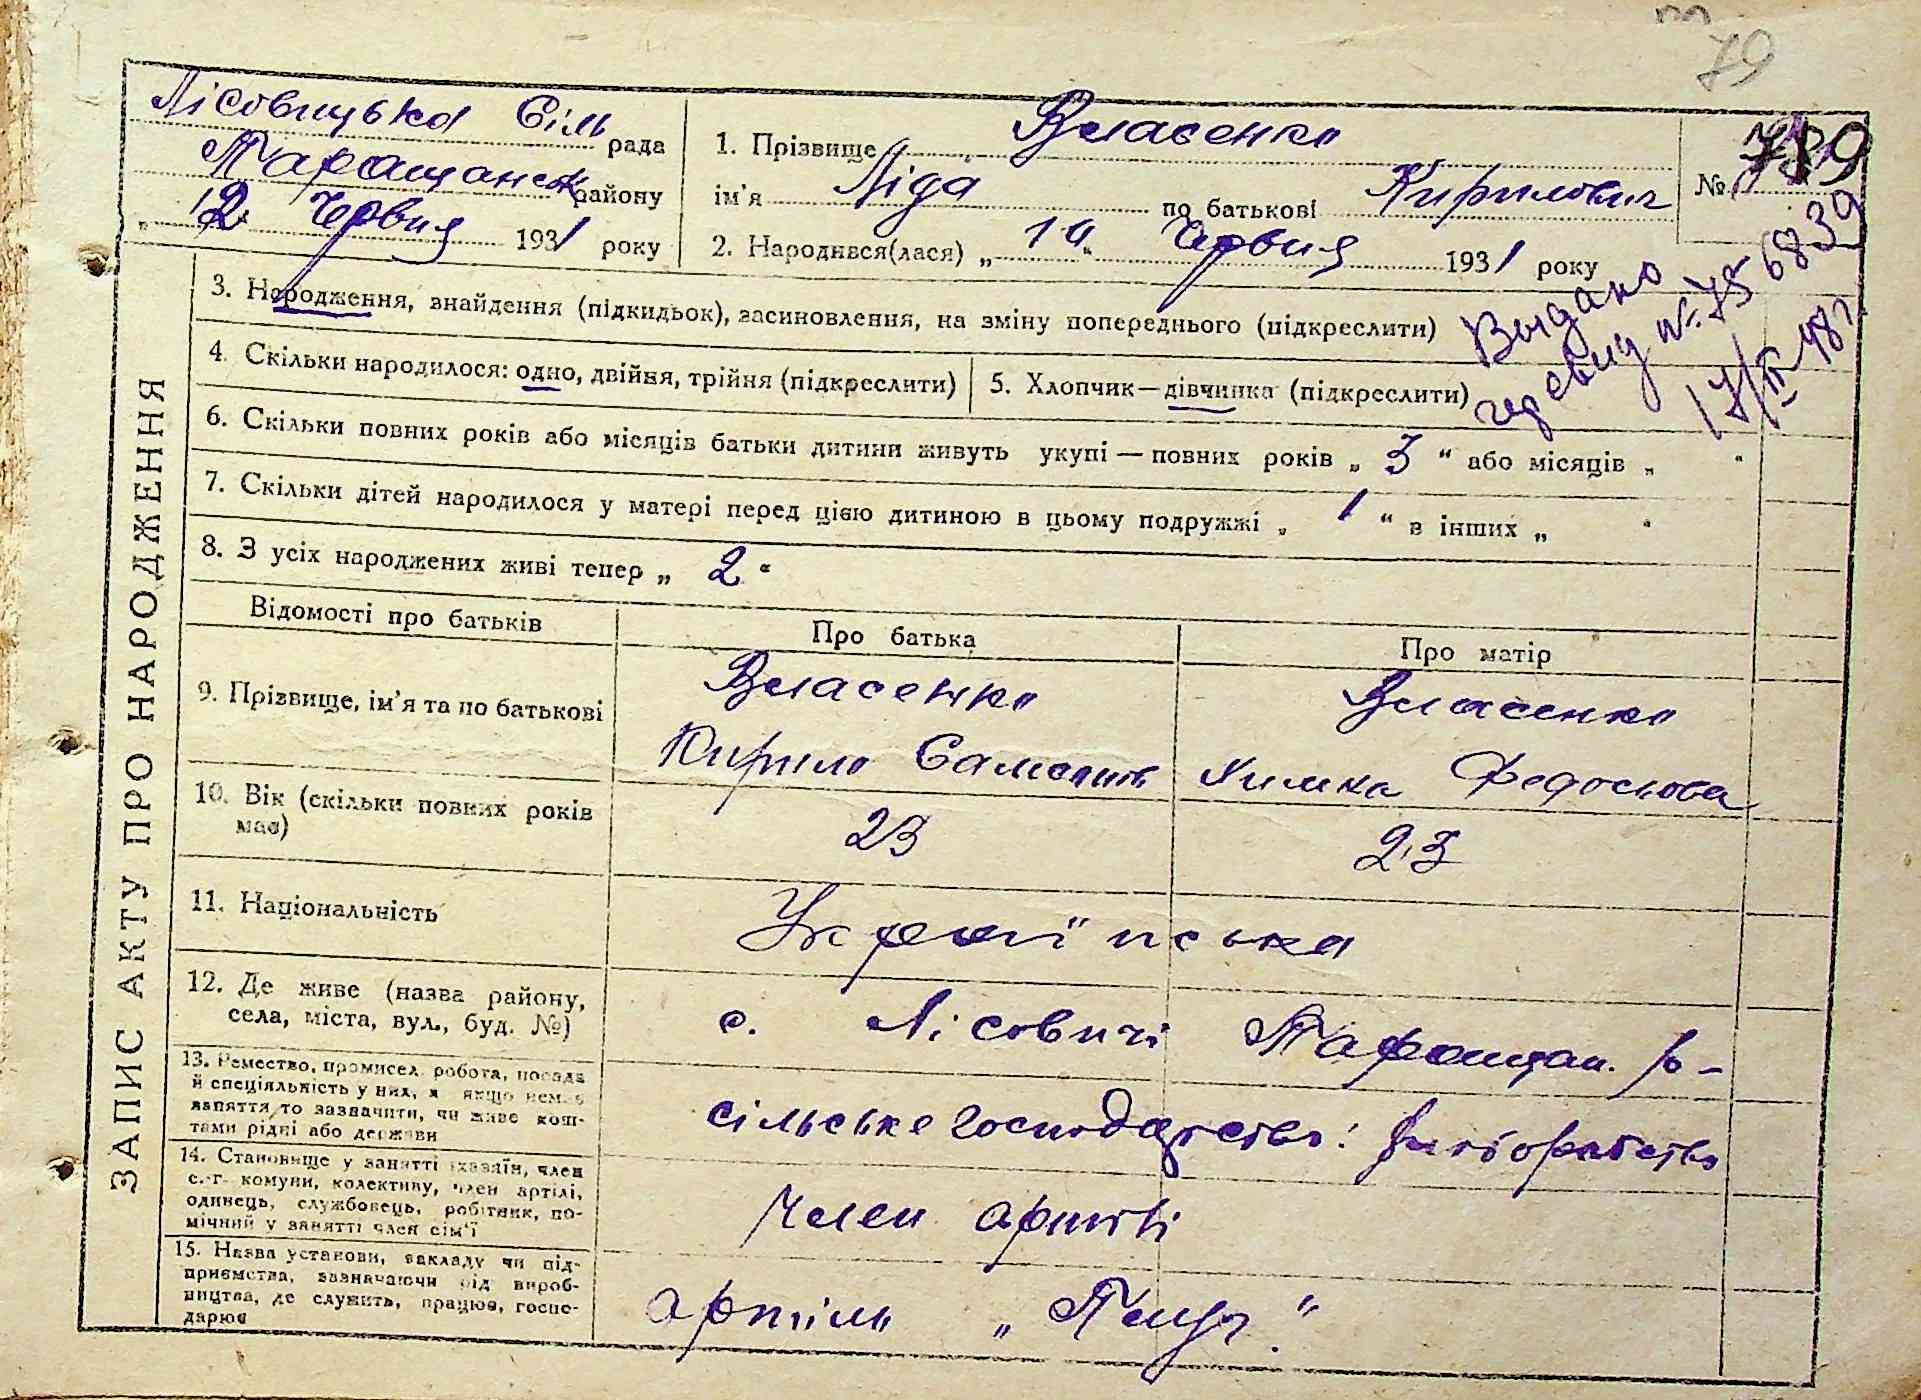 79
Лісовицька Сіль рада
Таращанськ району
„12 Червня 1931 року
1. Прізвище Власенко
ім'я Ліда по батькові Кирилович
2. Народився(лася) „10“ Червня 1931 року
№ 79
3. Народження, знайдення (підкидьок), засиновлення, на зміну попереднього (підкреслити)
Выдано
свид № 75 6839
17/II 48 г.
4. Скільки народилося: одно, двійня, трійня (підкреслити)
5. Хлопчик—дівчинка (підкреслити)
6. Скільки повних років або місяців батьки дитини живуть укупі — повних років „ 3 “ або місяців „ “
7. Скільки дітей народилося у матері перед цією дитиною в цьому подружжі „ 1 “ в інших „ “
8. З усіх народжених живі тепер „ 2 “
ЗАПИС АКТУ ПРО НАРОДЖЕННЯ
Відомості про батьків
Про батька
Про матір
9. Прізвище, ім'я та по батькові
Власенко
Кирило
Власенко
Химка Федосьова
10. Вік (скільки повних років має)
23
23
11. Національність
Українська
12. Де живе (назва району, села, міста, вул., буд. №)
с. Лісовичі Таращан. р-
13. Ремество, промисел, робота, посада й спеціяльність у них, а якщо немає заняття, то зазначити, чи живе коштами рідні або держави
сільське господарство:
14. Становище у занятті (хазяїн, член с.-г. комуни, колективу, член артілі, одинець, службовець, робітник, помічний у занятті член сім'ї
Член артілі
15. Назва установи, закладу чи підприємства, зазначаючи рід виробництва, де служить, працює, господарює
артіль „Плуг.“